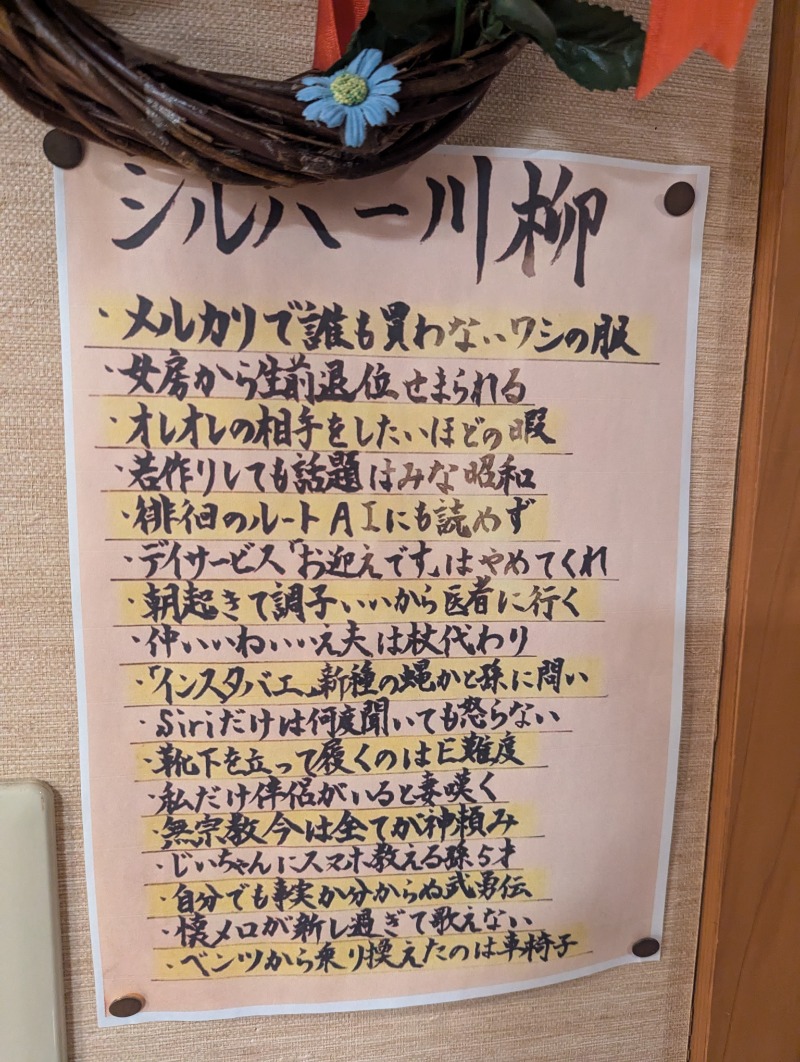 シルバー川柳
・メルカリで誰も買わないワシの服
・女房から生前退位せまられる
・オレオレの相手をしたいほどの暇
・若作りしても話題はみな昭和
・徘徊のルートAIにも読めず
・デイサービス「お迎えです」はやめてくれ
・朝起きて調子いいから医者に行く
・仲いいねいいえ夫は杖代わり
・「インスタバエ」新種の蝿かと孫に問い
・Siriだけは何度聞いても怒らない
・靴下を立って履くのはE難度
・私だけ伴侶がいると妻嘆く
・無宗教今は全てが神頼み
・じいちゃんにスマホ教える孫5才
・自分でも事実か分からぬ武勇伝
・懐メロが新し過ぎて歌えない
・ベンツから乗り換えたのは車椅子